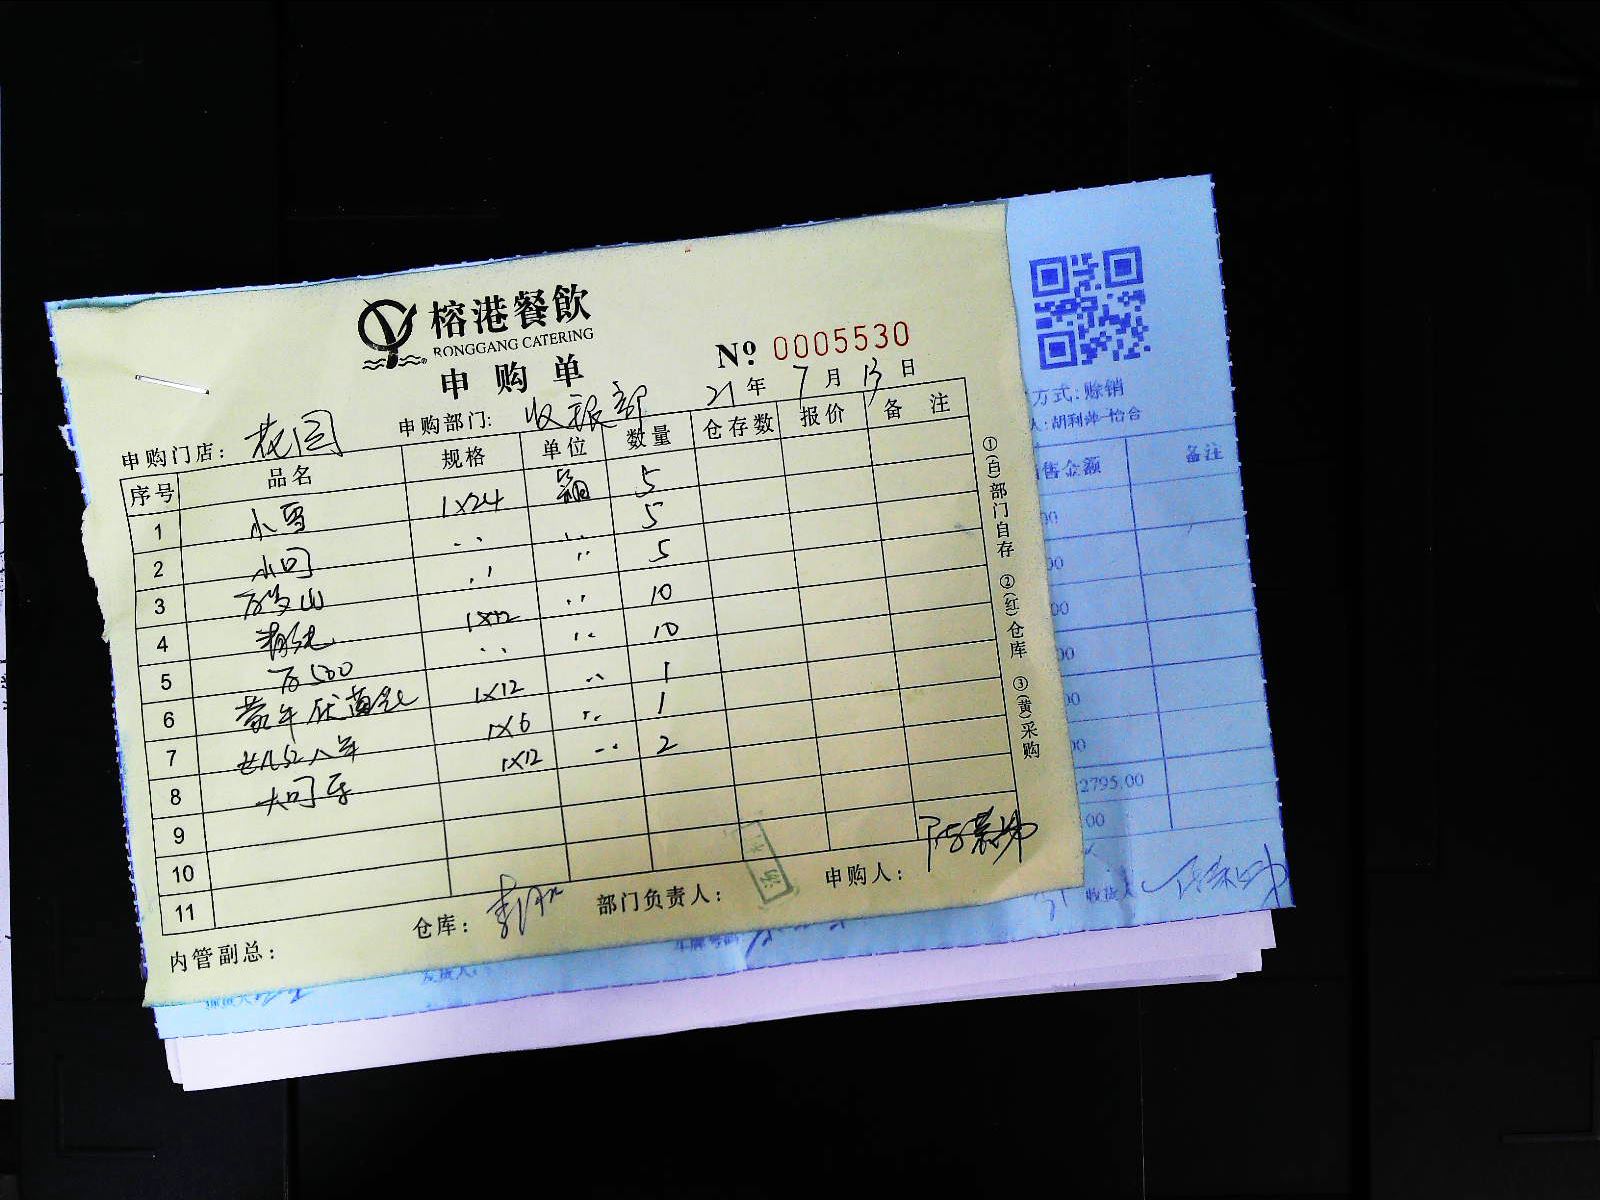 榕港餐飲
RONGGANG CATERING
申购单
№ 0005530
申购门店: 花园 申购部门: 收银部 21年7月13日
序号 品名 规格 单位 数量 仓存数 报价 备注
1 小雪 1×24 箱 5
2 小可 〃 〃 5
3 百岁山 〃 〃 5
4 精纯 1×12 〃 10
5 百500 〃 〃 10
6 蒙牛 1×12 〃 1
7 八年 1×6 〃 1
8 大可乐 1×12 〃 2
9
10
11
内管副总: 仓库: 部门负责人: 申购人:
①(白)部门自存 ②(红)仓库 ③(黄)采购
方式: 赊销
胡利萍-怡合
售金额 备注
00
00
00
00
00
00
2795.00
:00
收货人